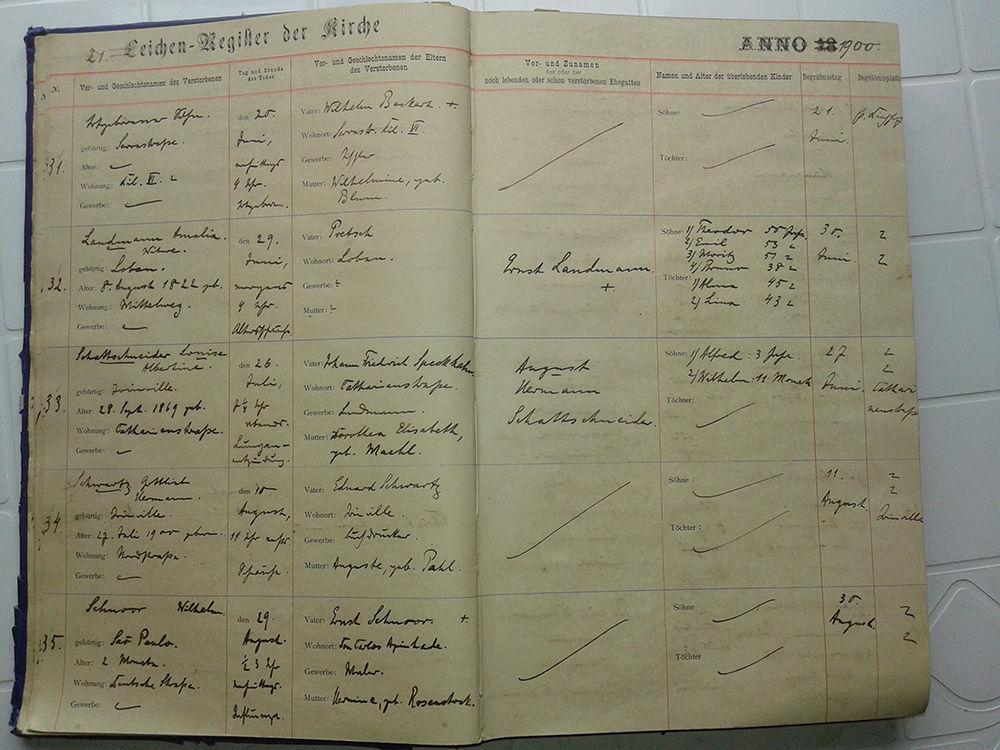 21. Leichen-Register der Kirche
ANNO 18 1900.
N.
Vor- und Geschlechtsnamen des Verstorbenen
Tag und Stunde des Todes
Vor- und Geschlechtsnamen der Eltern des Verstorbenen
Vor- und Zunamen des oder der noch lebenden oder schon verstorbenen Ehegatten
Namen und Alter der überlebenden Kinder
Begräbnistag
Begräbnisplatz
31.
den 20.
Juni,
4 Uhr.
Totgeboren.
gebürtig: Serrastraße.
Alter:
Wohnung: Kil. VI.
Gewerbe:
Vater: Wilhelm Beckert. +
Wohnort: Serrastr. Kil. VI.
Gewerbe:
Mutter: Wilhelmine, geb.
Blum.
Söhne:
Töchter:
21.
Juni.
32.
Landmann Amalia.
Witwe.
gebürtig: Loban.
Alter: 8. August 1822 geb.
Wohnung: Mittelweg.
Gewerbe:
den 29.
Juni,
morgens
4 Uhr.
Vater: Pretsch
Wohnort: Loban.
Gewerbe:
Mutter:
Ernst Landmann.
+
Söhne: 1) Theodor 55 Jahr.
2) Emil 53
3) Moritz 51
4) Bruno 38
Töchter: 1) Alma 45
2) Lina 43
30.
Juni
33.
Schattschneider Louise
Albertine.
gebürtig: Joinville.
Alter: 28. Sept. 1869 geb.
Wohnung: Catharinenstraße.
Gewerbe:
den 26.
Juli,
Uhr
abends.
Lungen-
entzündung.
Vater: Johann Friedrich Speckhahn
Wohnort: Catharinenstraße.
Gewerbe: Landmann.
Mutter: Dorothea Elisabeth,
geb. Maehl.
August
Hermann
Schattschneider.
Söhne: 1) Alfred: 3 Jahr.
2) Wilhelm: 11 Monate
Töchter:
27
Juni,
Cathari
nenstraße
34.
Schwartz Gottlieb
Hermann.
gebürtig: Joinville.
Alter: 27. Juli 1900 geboren.
Wohnung: Nordstraße.
Gewerbe:
den 10
August,
11 Uhr
Vater: Eduard Schwartz
Wohnort: Joinville.
Gewerbe: Buchdrucker.
Mutter: Auguste, geb. Pahl.
Söhne:
Töchter:
11.
August.
Joinville
35.
Schnoor Wilhelm
gebürtig: São Paulo.
Alter: 2 Monate.
Wohnung: Deutsche Straße.
Gewerbe:
den 29
August.
½ 3 Uhr
nachmittags.
Vater: Ernst Schnoor. +
Wohnort:
Gewerbe: Maler.
Mutter: Hermine, geb. Rosenstock.
Söhne
Töchter
30.
August.